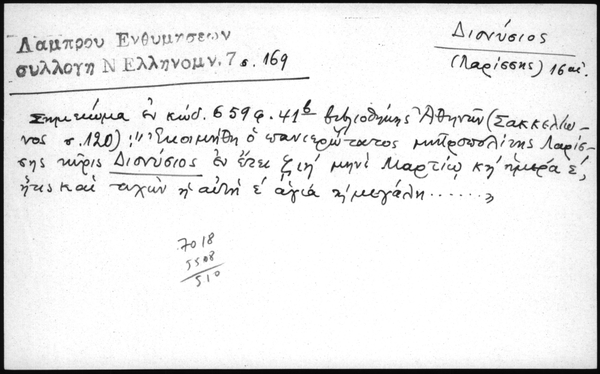 Λαμπρου Ενθυμησεων
συλλογη Ν Ελληνομν. 7 σ. 169
Διονύσιος
(Λαρίσσης) 16 αι.
Σημείωμα ἐν κώδ. 659 φ. 41β βιβλιοθήκης Ἀθηνῶν (Σακκελίω-
νος σ. 120): "Ἐκοιμήθη ὁ πανιερώτατος μητροπολίτης Λαρίσ-
σης κῦρις Διονύσιος ἐν ἔτει ζιη' μηνὶ Μαρτίῳ κη' ἡμέρᾳ ε',
ἥτις καὶ τυχὼν ἡ αὐτὴ ε' ἁγία κ' μεγάλη ......"
7018
5508
510